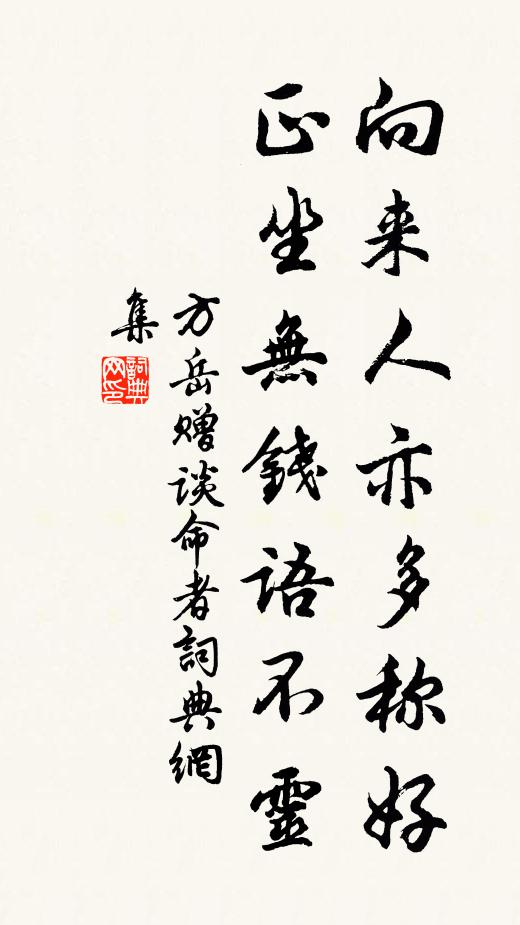 向来人亦多称好
正坐無錢語不靈
方岳赠谈命者詞典網
集
詞典網印